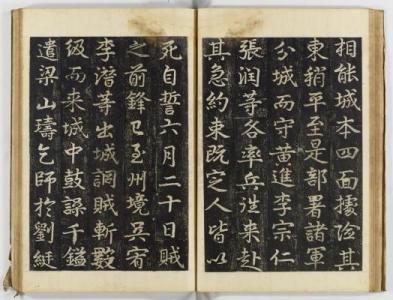 相能城本四面據險其
東稍平至是部署諸軍
分城而守黄進李宗仁
張潤等各率兵往來赴
其急約束既定人皆以
死自誓六月二十日賊
之前鋒已至州境吴宥
李潛等出城詗賊斬數
级而来城中鼓譟千鎰
遣梁山璹乞師於劉綎